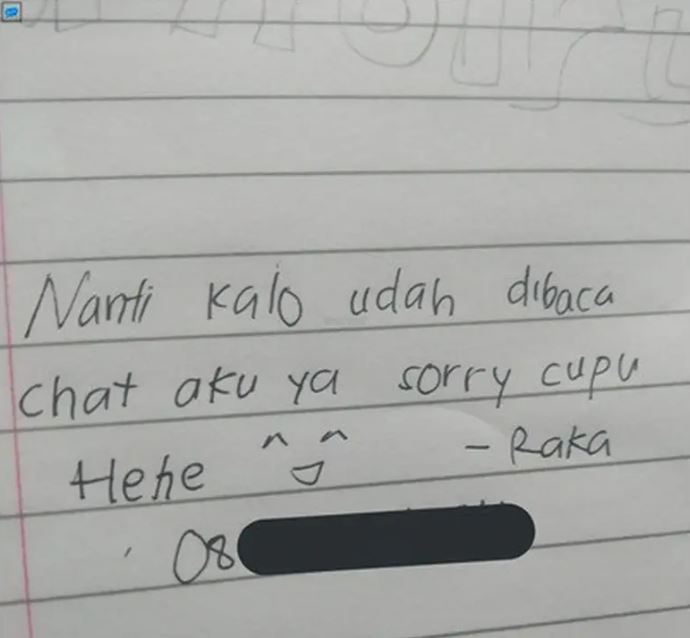 Nanti kalo udah dibaca
chat aku ya sorry cupu
Hehe ^ ^ - Raka
08